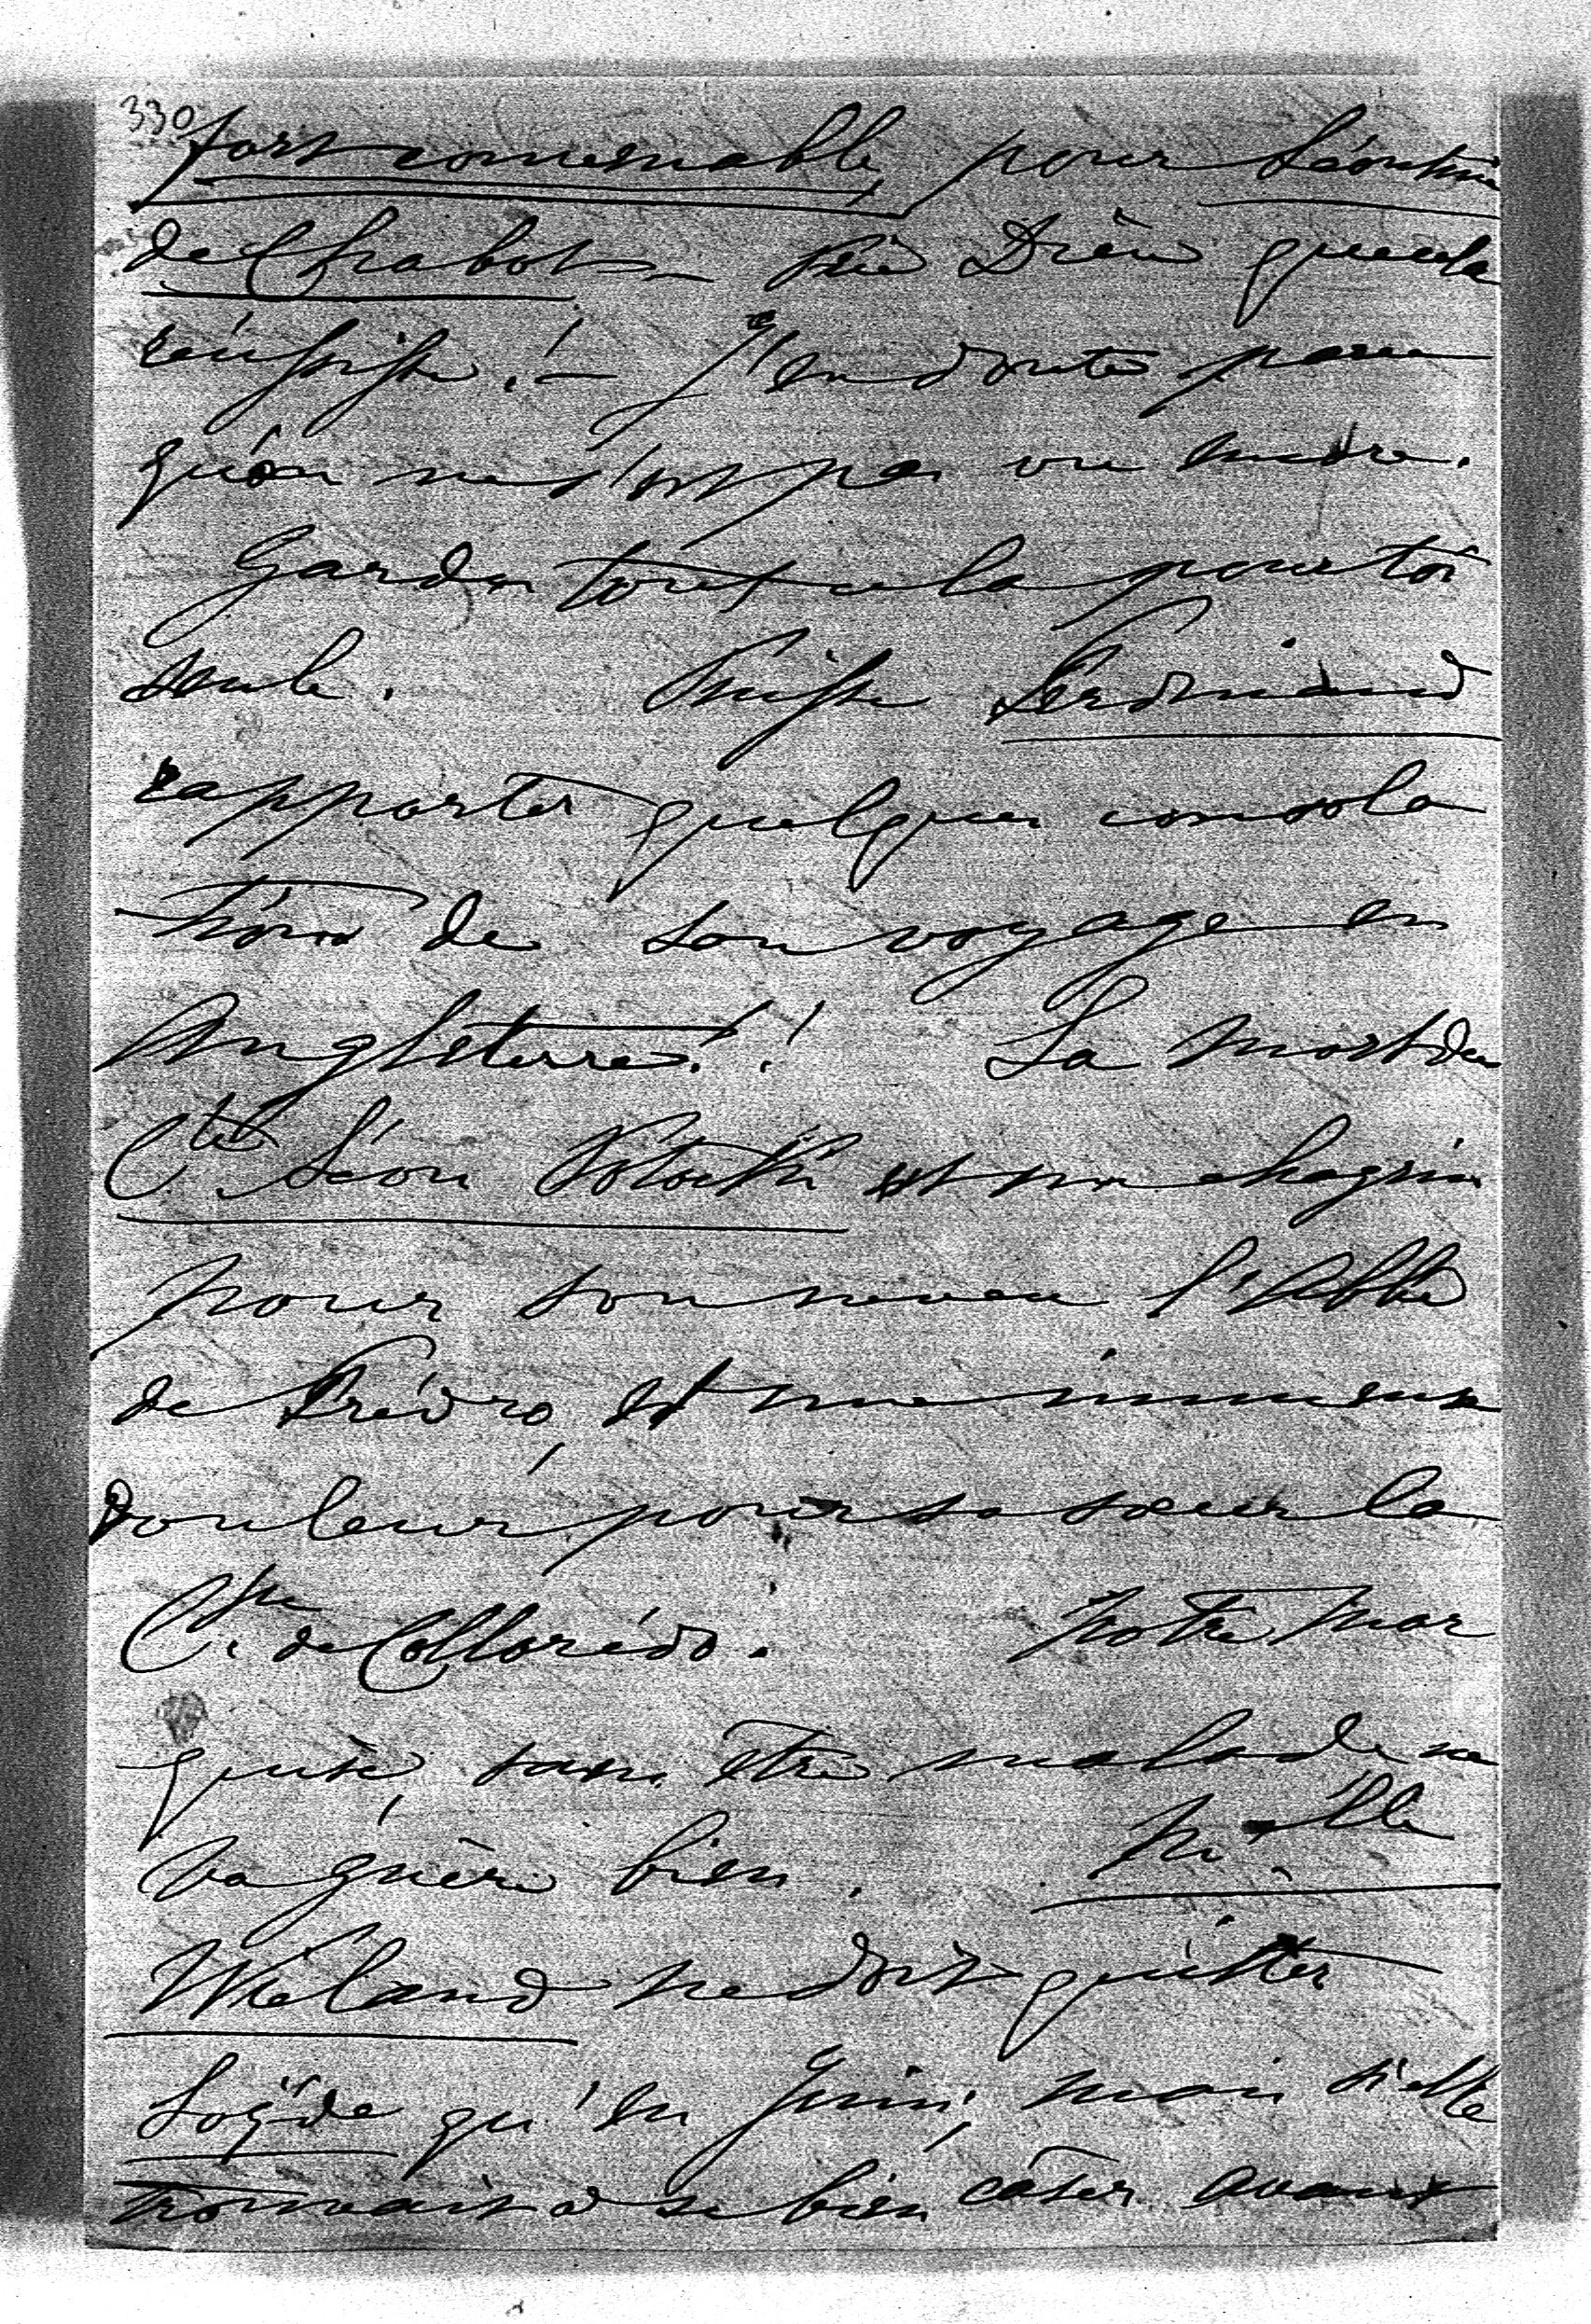 330
fort convenable, pour Léontine
de Chabot – Prie Dieu que cela
réussisse ! – J'en doute parce
qu'on ne s'est pas vu
Garde tout cela pour toi
seule. Puisse Ferdinand
rapporter quelques consola
tions de son voyage en
Angleterre ! ! La mort du
Cte Léon Potocki est un chagrin
pour son neveu l'Abbé
de et une immense
douleur, pour sa soeur la
Csse de Collorédo. Notre Mar
quise, sans être malade ne
va guère bien. Mlle
Wieland ne doit quitter
qu'en Juin, mais si elle
trouvait à se bien câser avant